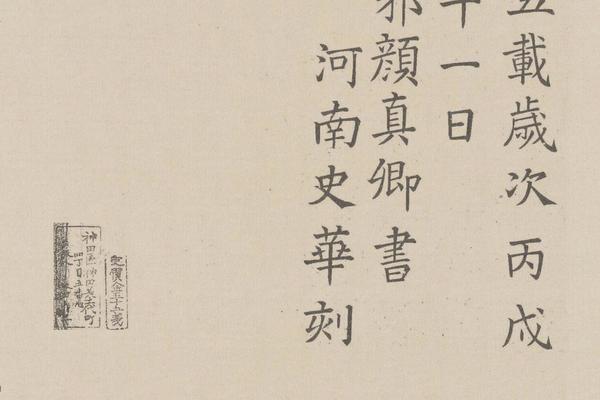 五載歳次丙戌
十一日
邪顔真卿書
河南史華刻